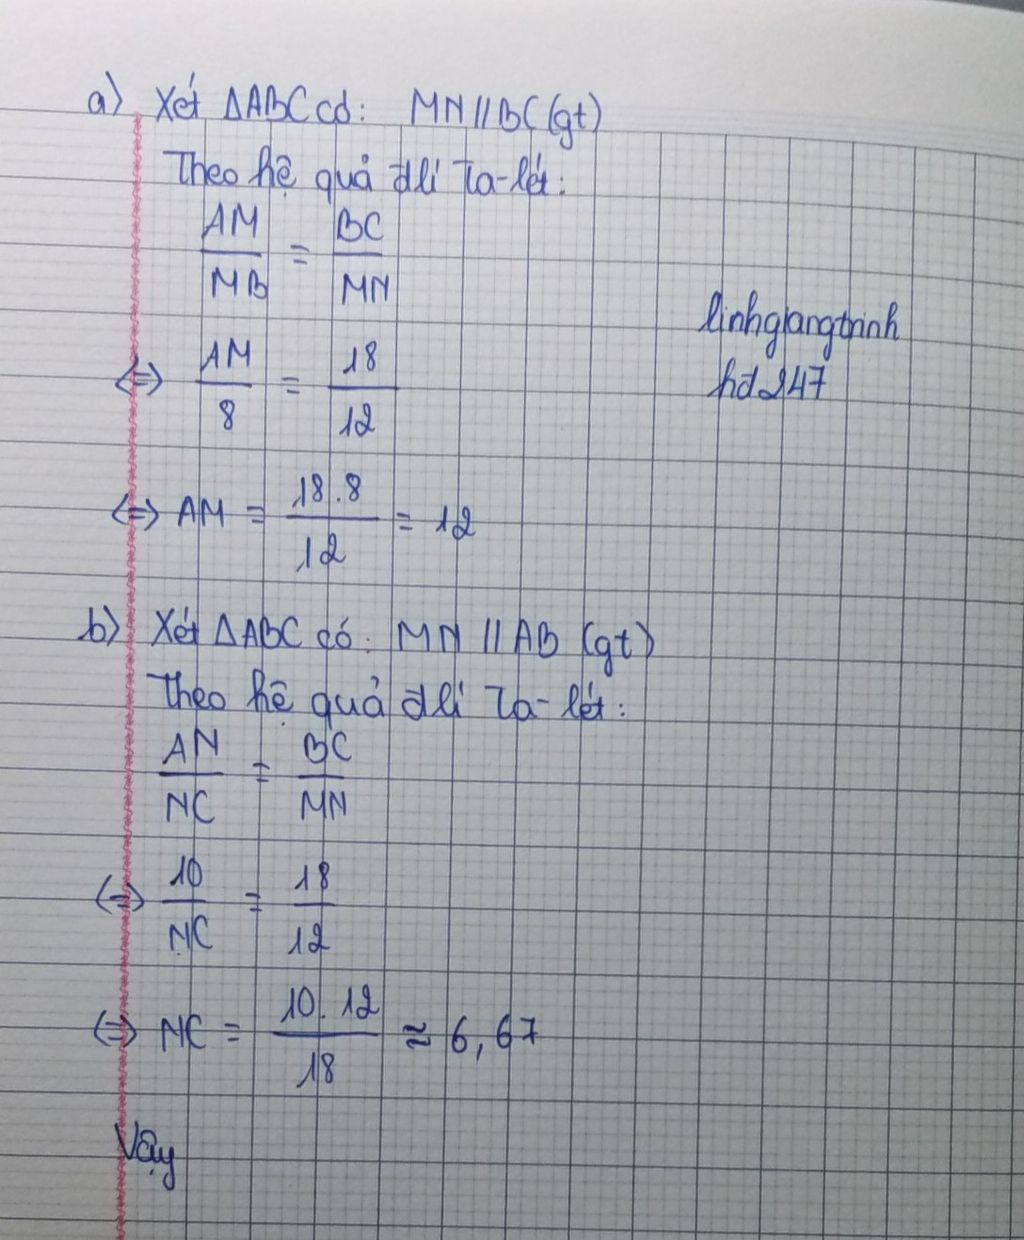 a) Xét ΔABC có: MN // BC (gt)
Theo hệ quả đlí Ta-lét:
AM/MB = BC/MN
⇔ AM/8 = 18/12
⇔ AM = 18.8/12 = 12
linhgiangtrinh
hd247
b) Xét ΔABC có: MN // AB (gt)
Theo hệ quả đlí Ta-lét:
AN/NC = BC/MN
⇔ 10/NC = 18/12
⇔ NC = 10.12/18 ≈ 6,67
Vậy